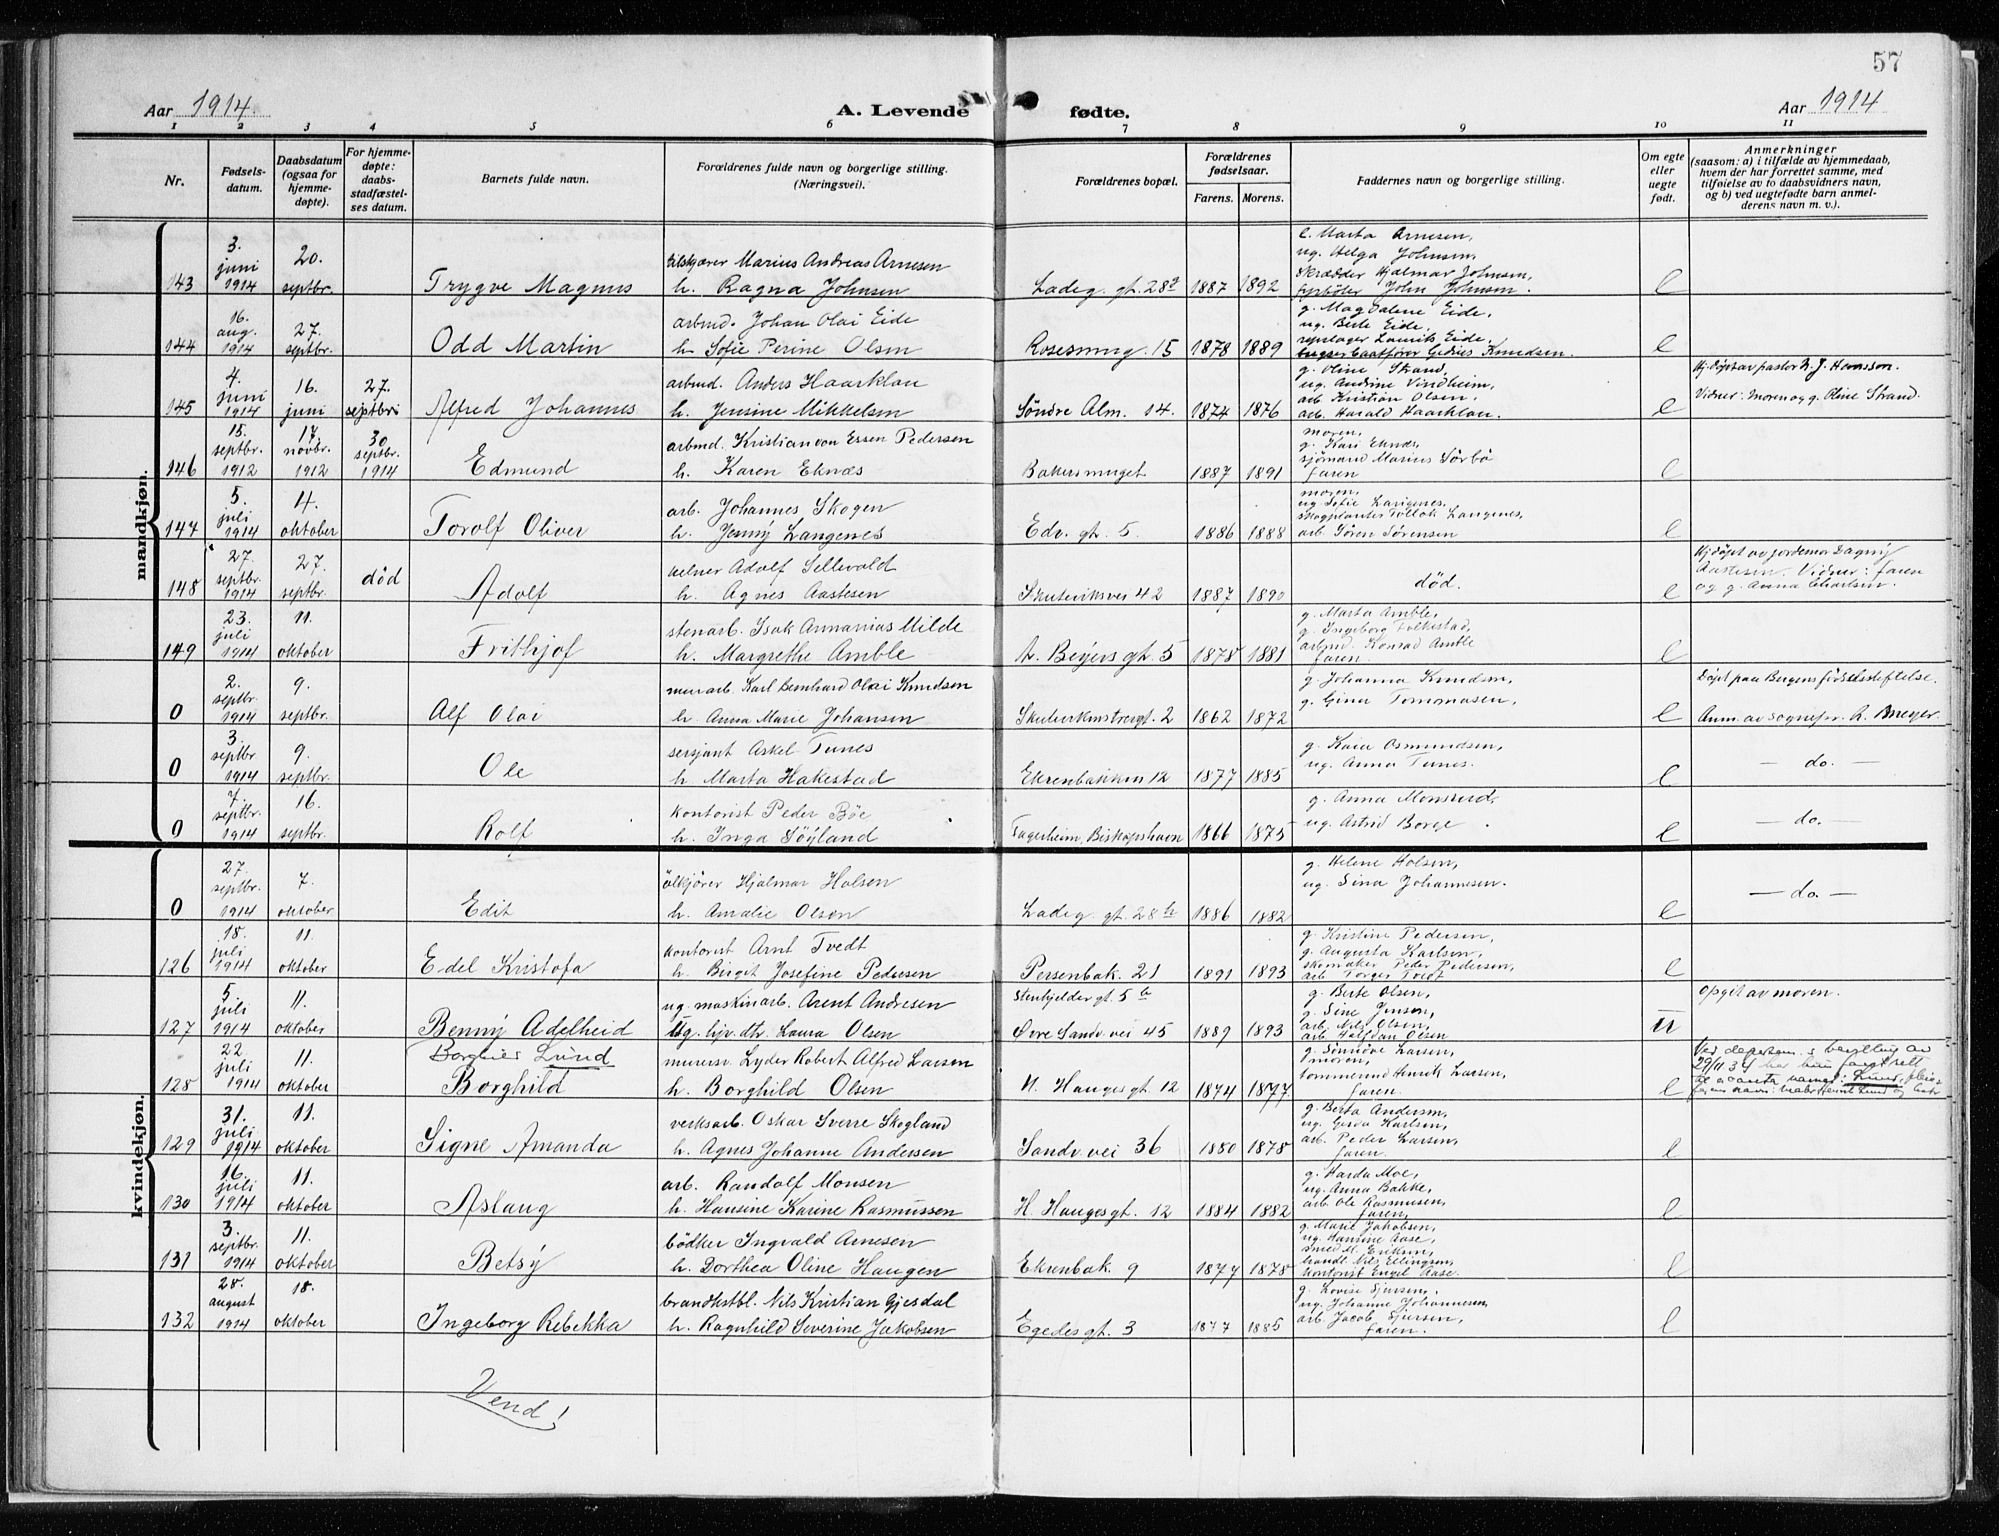 57
Aar 1914.
A. Levende fødte.
Aar 1914
1 2 3 4 5 6 7 8 9 10 11
Nr.
Fødsels-
datum.
Daabsdatum
(ogsaa for
hjemme-
døpte).
For hjemme-
døpte:
daabs-
stadfæstel-
ses datum.
Barnets fulde navn.
Forældrenes fulde navn og borgerlige stilling.
(Næringsvei).
Forældrenes bopæl.
Forældrenes
fødselsaar.
Farens. Morens.
Faddernes navn og borgerlige stilling.
Om egte
eller
uegte
født.
Anmerkninger
(saasom: a) i tilfælde av hjemmedaab,
hvem der har forrettet samme, med
tilføielse av to daabsvidners navn,
og b) ved uegtefødte barn anmel-
derens navn m. v.).
mandkjøn.
143
3.
juni
1914
20.
septbr.
Trygve Magnus
tilskjærer Marius Andreas Arnesen
h. Ragna Johnsen
Ladeg. gt. 28a
1887 1892
e. Marta Arnesen,
ug. Helga Johnsen,
skrædder Hjalmar Johnsen,
fyrbøter John Johnsen.
e
144
16.
aug.
1914
27.
septbr.
Odd Martin
arbmd. Johan Olai Eide
h. Sofie Perine Olsen
Rosesmug. 15
1878 1889
g. Magdalene Eide,
ug. Berte Eide,
repslager Lauritz Eide,
bugserbaatfører Gedius Knudsen.
e
145
4.
juni
1914
16.
juni
27.
septbr
Alfred Johannes
arbmd. Anders Haarklau
h. Jensine Mikkelsen
Søndre Alm. 14.
1874 1876
g. Oline Strand,
ug. Andrine Vindheim,
arb. Kristian Olsen,
arb. Harald Haarklau.
e
Hj.døpt av pastor R. J. Hansson.
Vidner: moren og g. Oline Strand.
146
15.
septbr.
1912
17.
novbr.
1912
30
septbr.
1914
Edmund
arbmd. Kristian von Essen Pedersen
h. Karen Eknæs
Bakersmuget
1887 1891
moren,
g. Kari Eknæs,
sjømand Marius Sørbø
faren
e
147
5.
juli
1914
4.
oktober
Torolf Oliver
arb. Johannes Skogen
h. Jenny Langenes
Edv. gt. 5.
1886 1888
moren,
ug. Sofie Langenes,
skogplanter Tollak Langenes,
arb. Søren Sørensen
e
148
27.
septbr.
1914
27.
septbr.
død
Adolf
kelner Adolf Sellevold
h. Agnes Aastesen
Skuteviksvei 42
1887 1890
død.
e
Hj.døpt av jordemor Dagny
Aastesen. Vidner: faren
og g. Anna Charlsen.
149
23.
juli
1914
11.
oktober
Frithjof
stenarb. Isak Annanias Milde
h. Margrethe Amble
A. Beyers gt. 5
1878 1881
g. Marta Amble,
g. Ingeborg Folkestad,
arbmd. Konrad Amble
faren.
e
0
2.
septbr.
1914
9.
septbr.
Alf Olai
murarb. Karl Bernhard Olai Knudsen
h. Anna Marie Johansen
1862 1872
g. Johanna Knudsen,
g. Gina Tommasen,
e
Døpt paa Bergens fødselsstiftelse.
Anm. av sognepr. A. Breyer.
0
3.
septbr
1914
9.
septbr.
Ole
sersjant Askel Tunes
h. Marta Hakestad
Ekrenbakken 12
1877 1885
g. Kaia Osmundsen,
ug. Anna Tunes.
e
— do. —
0
7.
septbr.
1914
16.
septbr.
Rolf
kontorist Peder Bøe
h. Inga Søyland
Fagerheim, Biskopshavn
1866 1875
g. Anna Monsrud,
ug. Astrid Borge.
e
— do. —
kvindekjøn.
0
27.
septbr.
1914
7.
oktober
Edit
ølkjører Hjalmar Holsen
h. Amalie Olsen
Ladeg. gt. 28b
1886 1882
g. Helene Holsen,
ug. Sina Johannesen.
e
— do. —
126
18.
juli
1914
11.
oktober
Edel Kristofa
kontorist Arnt Tvedt
h. Birgit Josefine Pedersen
Persenbak. 21
1891 1893
g. Kristine Pedersen,
g. Augusta Karlsen,
skomaker Peder Pedersen,
arb. Torger Tvedt
e
127
5.
juli
1914
11.
oktober
Benny Adelheid
ug. maskinarb. Arent Andresen
ug. hjv. dtr. Laura Olsen
Stenkjelder gt. 5b
Øvre Sandv. vei 45
1889 1893
g. Berte Olsen,
g. Sine Jensen,
arb. Nils Olsen,
arb. Halfdan Olsen
U
Opgit av moren.
128
22
juli
1914
11.
oktober
Lund
Borghild
murersv. Lyder Robert Alfred Larsen
h. Borghild Olsen
N. Hauges gt. 12
1874 1877
g. Sønnøve Larsen,
moren,
tømmermd Henrik Larsen,
faren.
e
bevilling av
29/11 34 har hun faat rett
129
31.
juli
1914
11.
oktober
Signe Amanda
verksarb. Oskar Sverre Skogland
h. Agnes Johanne Andersen
Sandv. vei 36
1880 1878
g. Berta Andersen,
ug. Gerda Karlsen,
arb. Peder Larsen,
faren.
e
130
16.
juli
1914
11.
oktober
Aslaug
arb. Randolf Monsen
h. Hansine Karine Rasmussen
H. Hauges gt. 12
1884 1882
g. Harda Moe,
ug. Anna Bakke,
arb. Ole Rasmussen,
faren.
e
131
3.
septbr.
1914
11.
oktober
Betsy
bødker Ingvald Arnesen
h. Dorthea Oline Haugen
Ekrenbak. 9
1877 1878
g. Marie Jakobsen,
ug. Hansine Aase,
smed M. Eriksen,
handl. Nils Ellingsen,
kontorist Engel Aase.
e
132
28.
august
1914
18.
oktober
Ingeborg Rebekka
brandkstbl. Nils Kristian Gjesdal
h. Ragnhild Severine Jakobsen
Egedes gt. 3
1877 1885
g. Lovise Sjursen,
ug. Johanne Johannesen,
arb. Jacob Sjursen,
faren.
e
Vend!